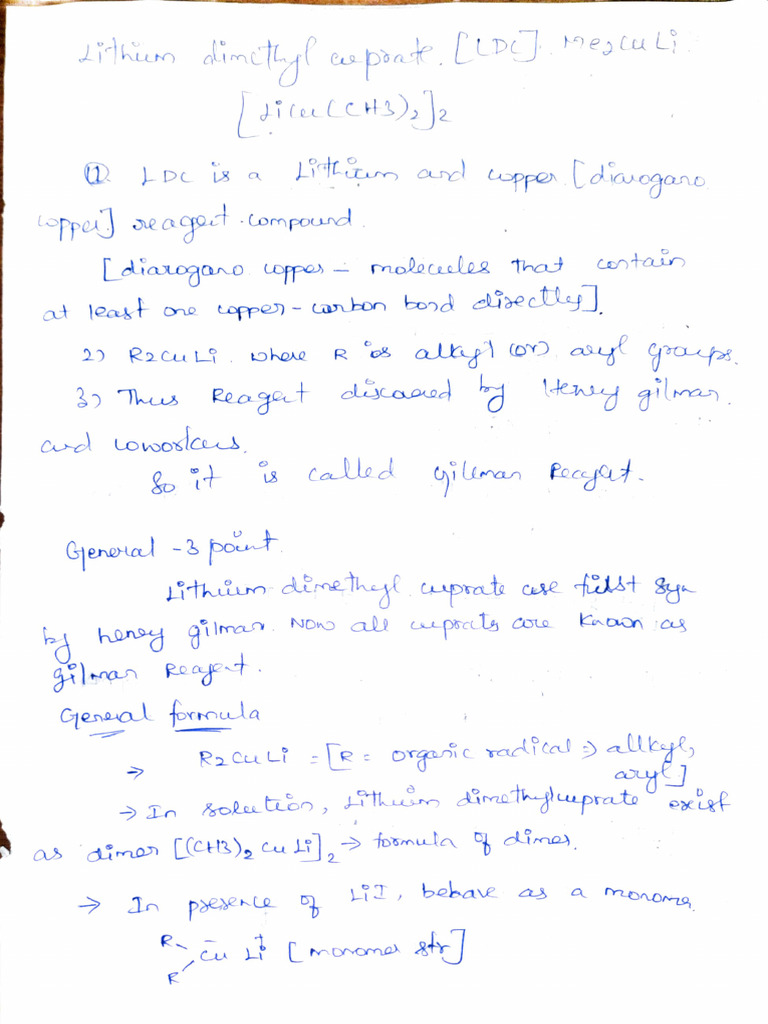 Lithium dimethyl cuprate. [LDC]. Me2CuLi
[LiCu(CH3)2]2
① LDC is a Lithium and copper [diarogano
copper] reagent compound.
[diarogano copper - molecules that contain
at least one copper-carbon bond directly].
2) R2CuLi. where R is alkyl (or) aryl groups.
3) Thus Reagent discovered by Henry gilman.
and coworkers.
So it is called gillman Reagent.
General - 3 point.
Lithium dimethyl cuprate are first syn
by henry gilman. Now all cuprates are known as
gilman Reagent.
General formula
→ R2CuLi = [R = organic radical => allkyl,
aryl]
→ In solution, Lithium dimethylcuprate exist
as dimer [(CH3)2CuLi]2 → formula of dimer.
→ In presence of LiI, behave as a monomer.
R
Cu⁻ Li⁺ [monomer str]
R